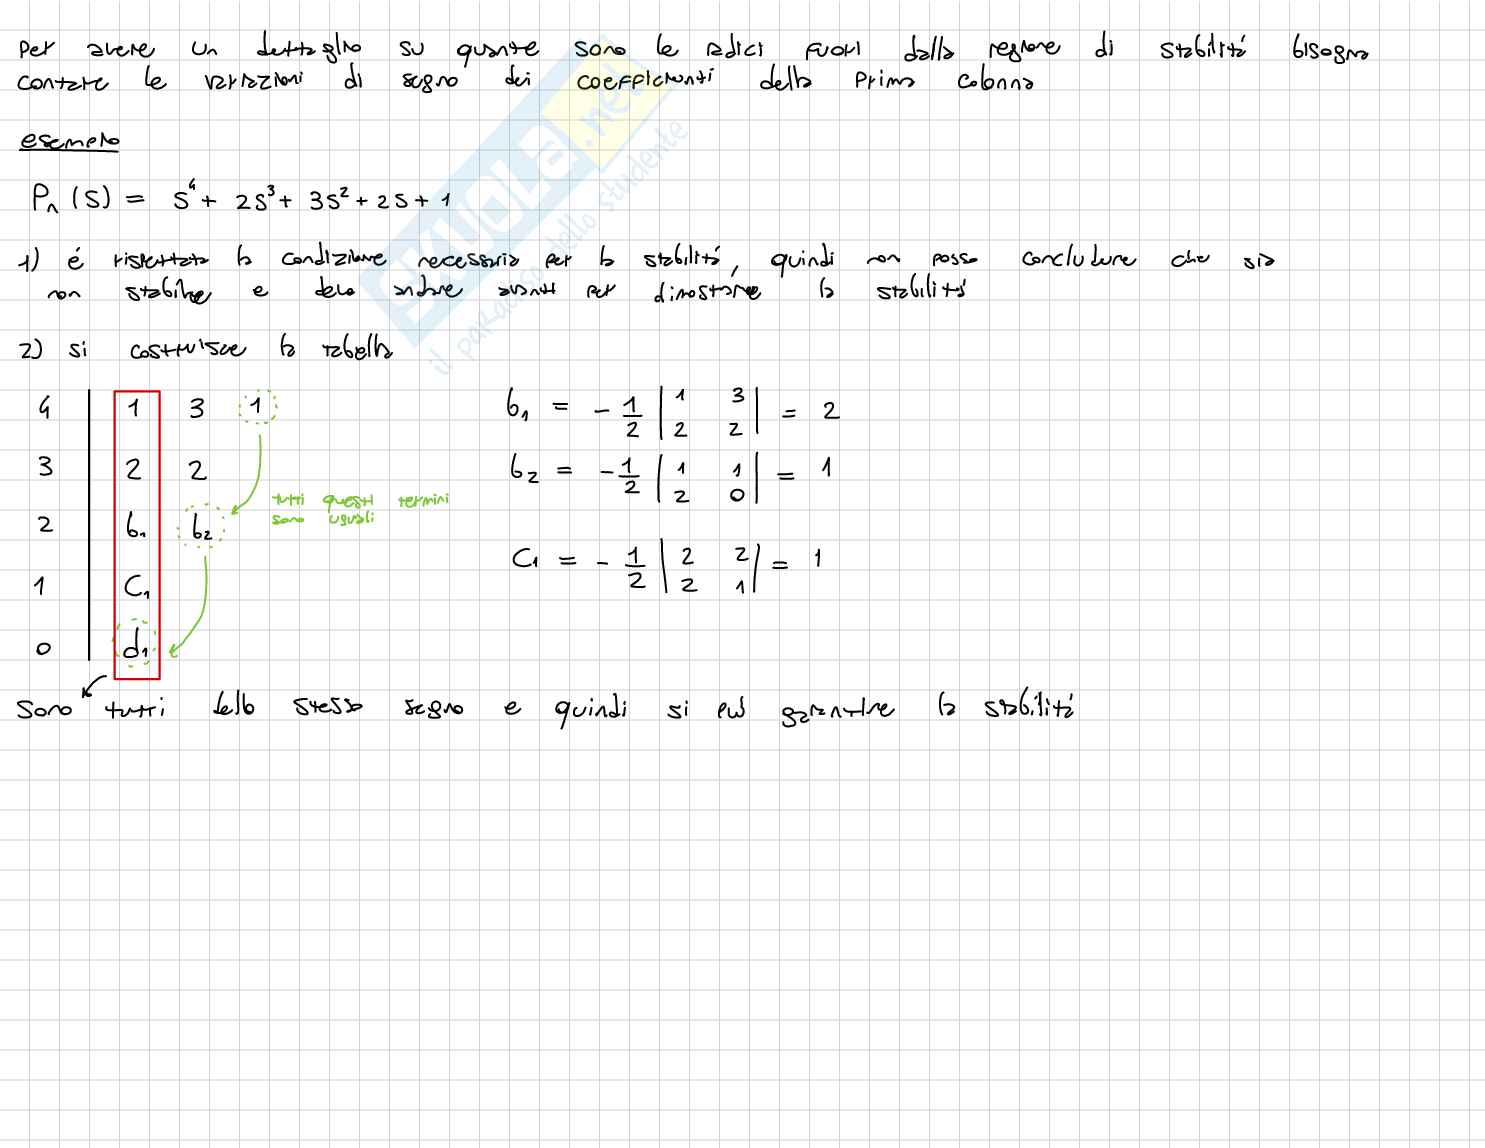 Per avere un dettaglio su quante sono le radici fuori dalla regione di stabilitá bisogna
contare le variazioni di segno dei coefficienti della prima colonna
esempio
Pn (S) = S⁴ + 2S³ + 3S² + 2S + 1
1) é rispettata la condizione necessaria per la stabilitá, quindi non posso concludere che sia
non stabile e devo andare avanti per dimostrare la stabilitá
2) si costruisce la tabella
4 | 1 3 1
3 | 2 2
2 | b₁ b₂
1 | C₁
0 | d₁
tutti questi termini
sono uguali
b₁ = - 1/2 | 1 3 ; 2 2 | = 2
b₂ = - 1/2 | 1 1 ; 2 0 | = 1
C₁ = - 1/2 | 2 2 ; 2 1 | = 1
Sono tutti dello stesso segno e quindi si puó garantire la stabilitá
SKUOLA.net
il paradiso dello studente